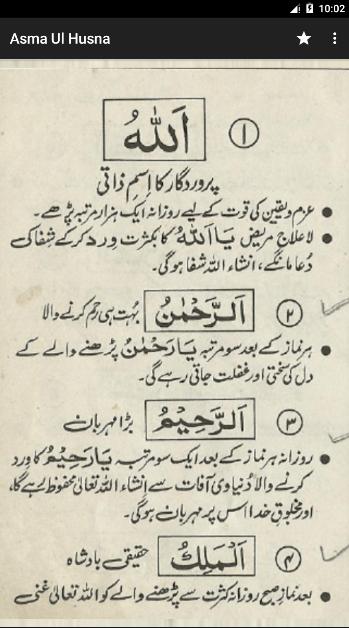 10:02
Asma Ul Husna
۱ اَللّٰهُ
پروردگار کا اِسمِ ذاتی
● عزم و یقین کی قوت کے لیے روزانہ ایک ہزار مرتبہ پڑھے۔
● لاعلاج مریض یَا اَللّٰهُ کا بکثرت ورد کرکے شفا کی
دُعا مانگے، انشاء اللہ شفا ہوگی۔
۲ اَلرَّحْمٰنُ بہُت ہی رحم کرنے والا
● ہر نماز کے بعد سو مرتبہ یَا رَحْمٰنُ پڑھنے والے کے
دل کی سختی اور غفلت جاتی رہے گی۔
۳ اَلرَّحِیْمُ بڑا مہربان
● روزانہ ہر نماز کے بعد ایک سو مرتبہ یَا رَحِیْمُ کا ورد
کرنے والا دُنیاوی آفات سے اِنشاء اللہ تعالیٰ محفوظ رہے گا،
اور مخلوقِ خدا اس پر مہربان ہوگی۔
۴ اَلْمَلِكُ حقیقی بادشاہ
● بعد نمازِ صبح روزانہ کثرت سے پڑھنے والے کو اللہ تعالیٰ غنی